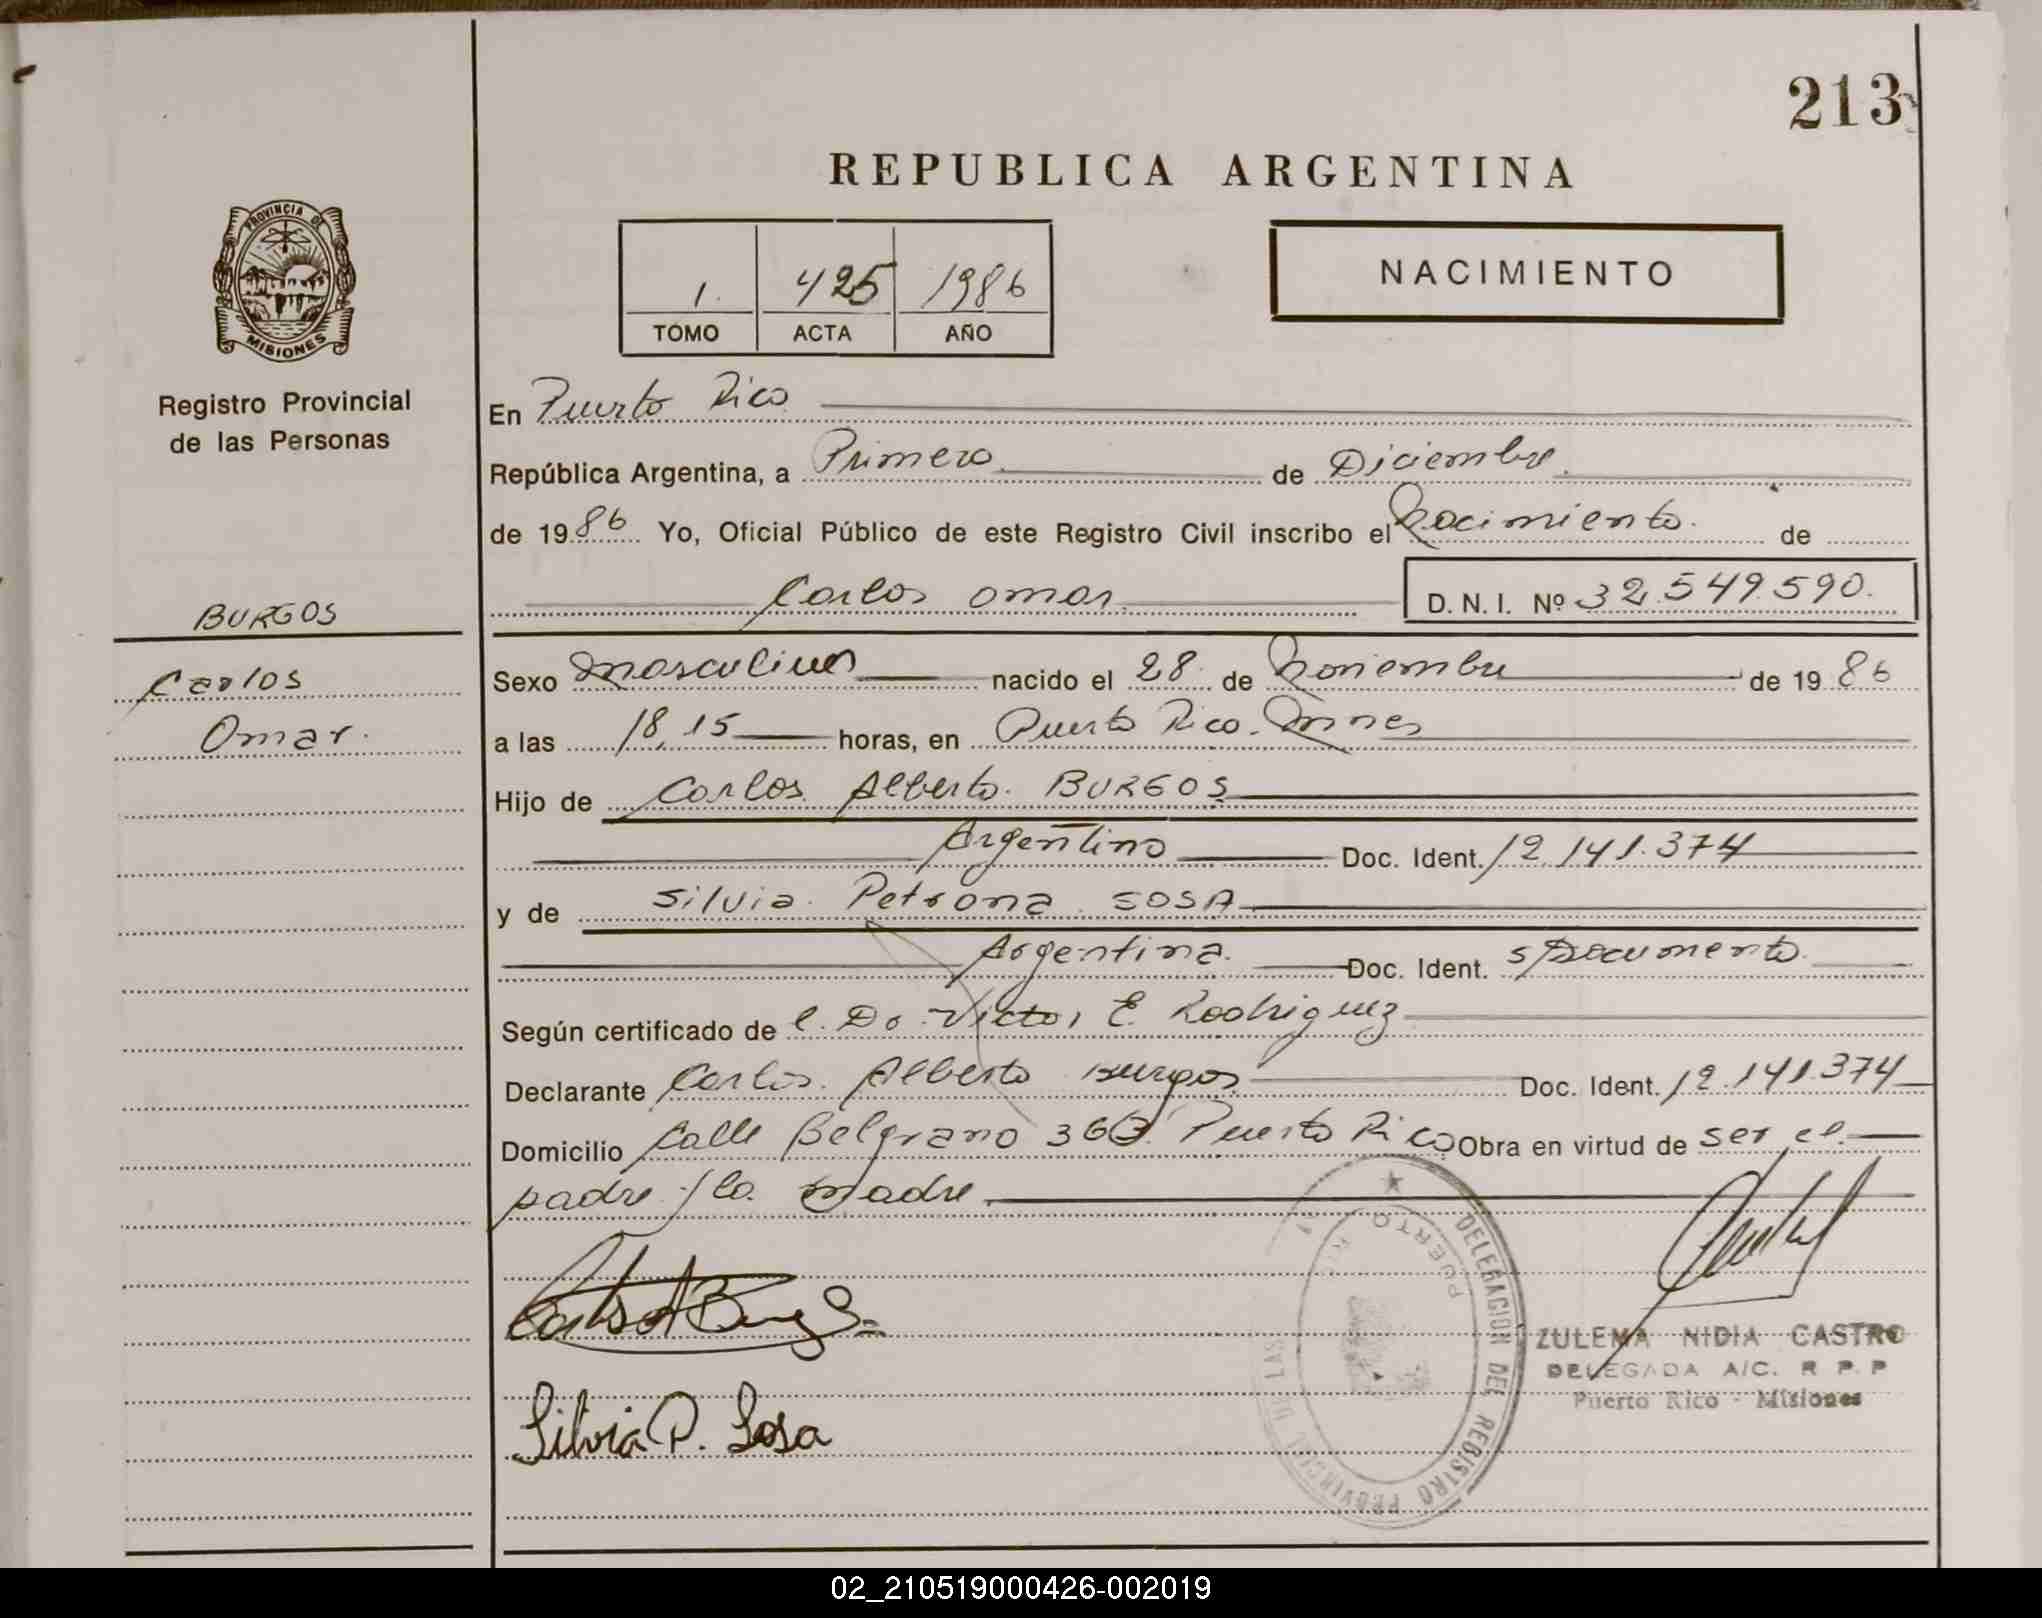 213
REPUBLICA ARGENTINA
PROVINCIA DE
MISIONES
Registro Provincial
de las Personas
1. 425 1986
TOMO ACTA AÑO
NACIMIENTO
En Puerto Rico
República Argentina, a Primero de Diciembre
de 1986 Yo, Oficial Público de este Registro Civil inscribo el Nacimiento de
Carlos Omar D.N.I. Nº 32.549590.
BURGOS
Carlos
Omar.
Sexo masculino nacido el 28 de Noviembre de 1986
a las 18,15 horas, en Puerto Rico. Mnes
Hijo de Carlos Alberto BURGOS
Argentino Doc. Ident. 12.141.374
y de Silvia Petrona SOSA
Argentina. Doc. Ident. s/Documento.
Según certificado de l. Dr. Victor E. Rodriguez
Declarante Carlos Alberto Burgos Doc. Ident. 12.141.374
Domicilio Calle Belgrano 363 Puerto Rico Obra en virtud de ser el
padre y la madre
Carlos A Burgos
Silvia P. Sosa
DELEGACION DEL REGISTRO PROVINCIAL DE LAS
PUERTO RICO
ZULEMA NIDIA CASTRO
DELEGADA A/C. R.P.P
Puerto Rico - Misiones
02_210519000426-002019